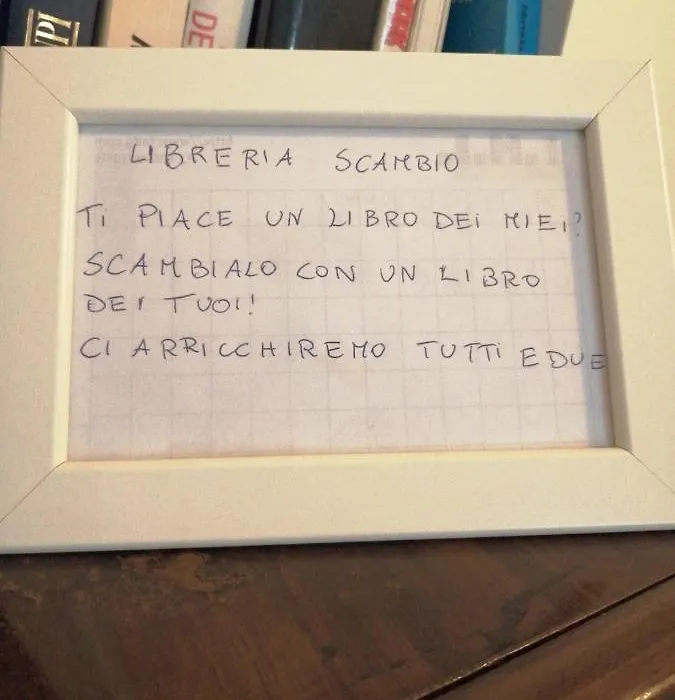 UPI
DE
LIBRERIA SCAMBIO
Ti PIACE UN LIBRO DEi MIEi?
SCAMBIALO CON UN LIBRO
DEI TUOI!
CI ARRICCHIREMO TUTTi E DUE